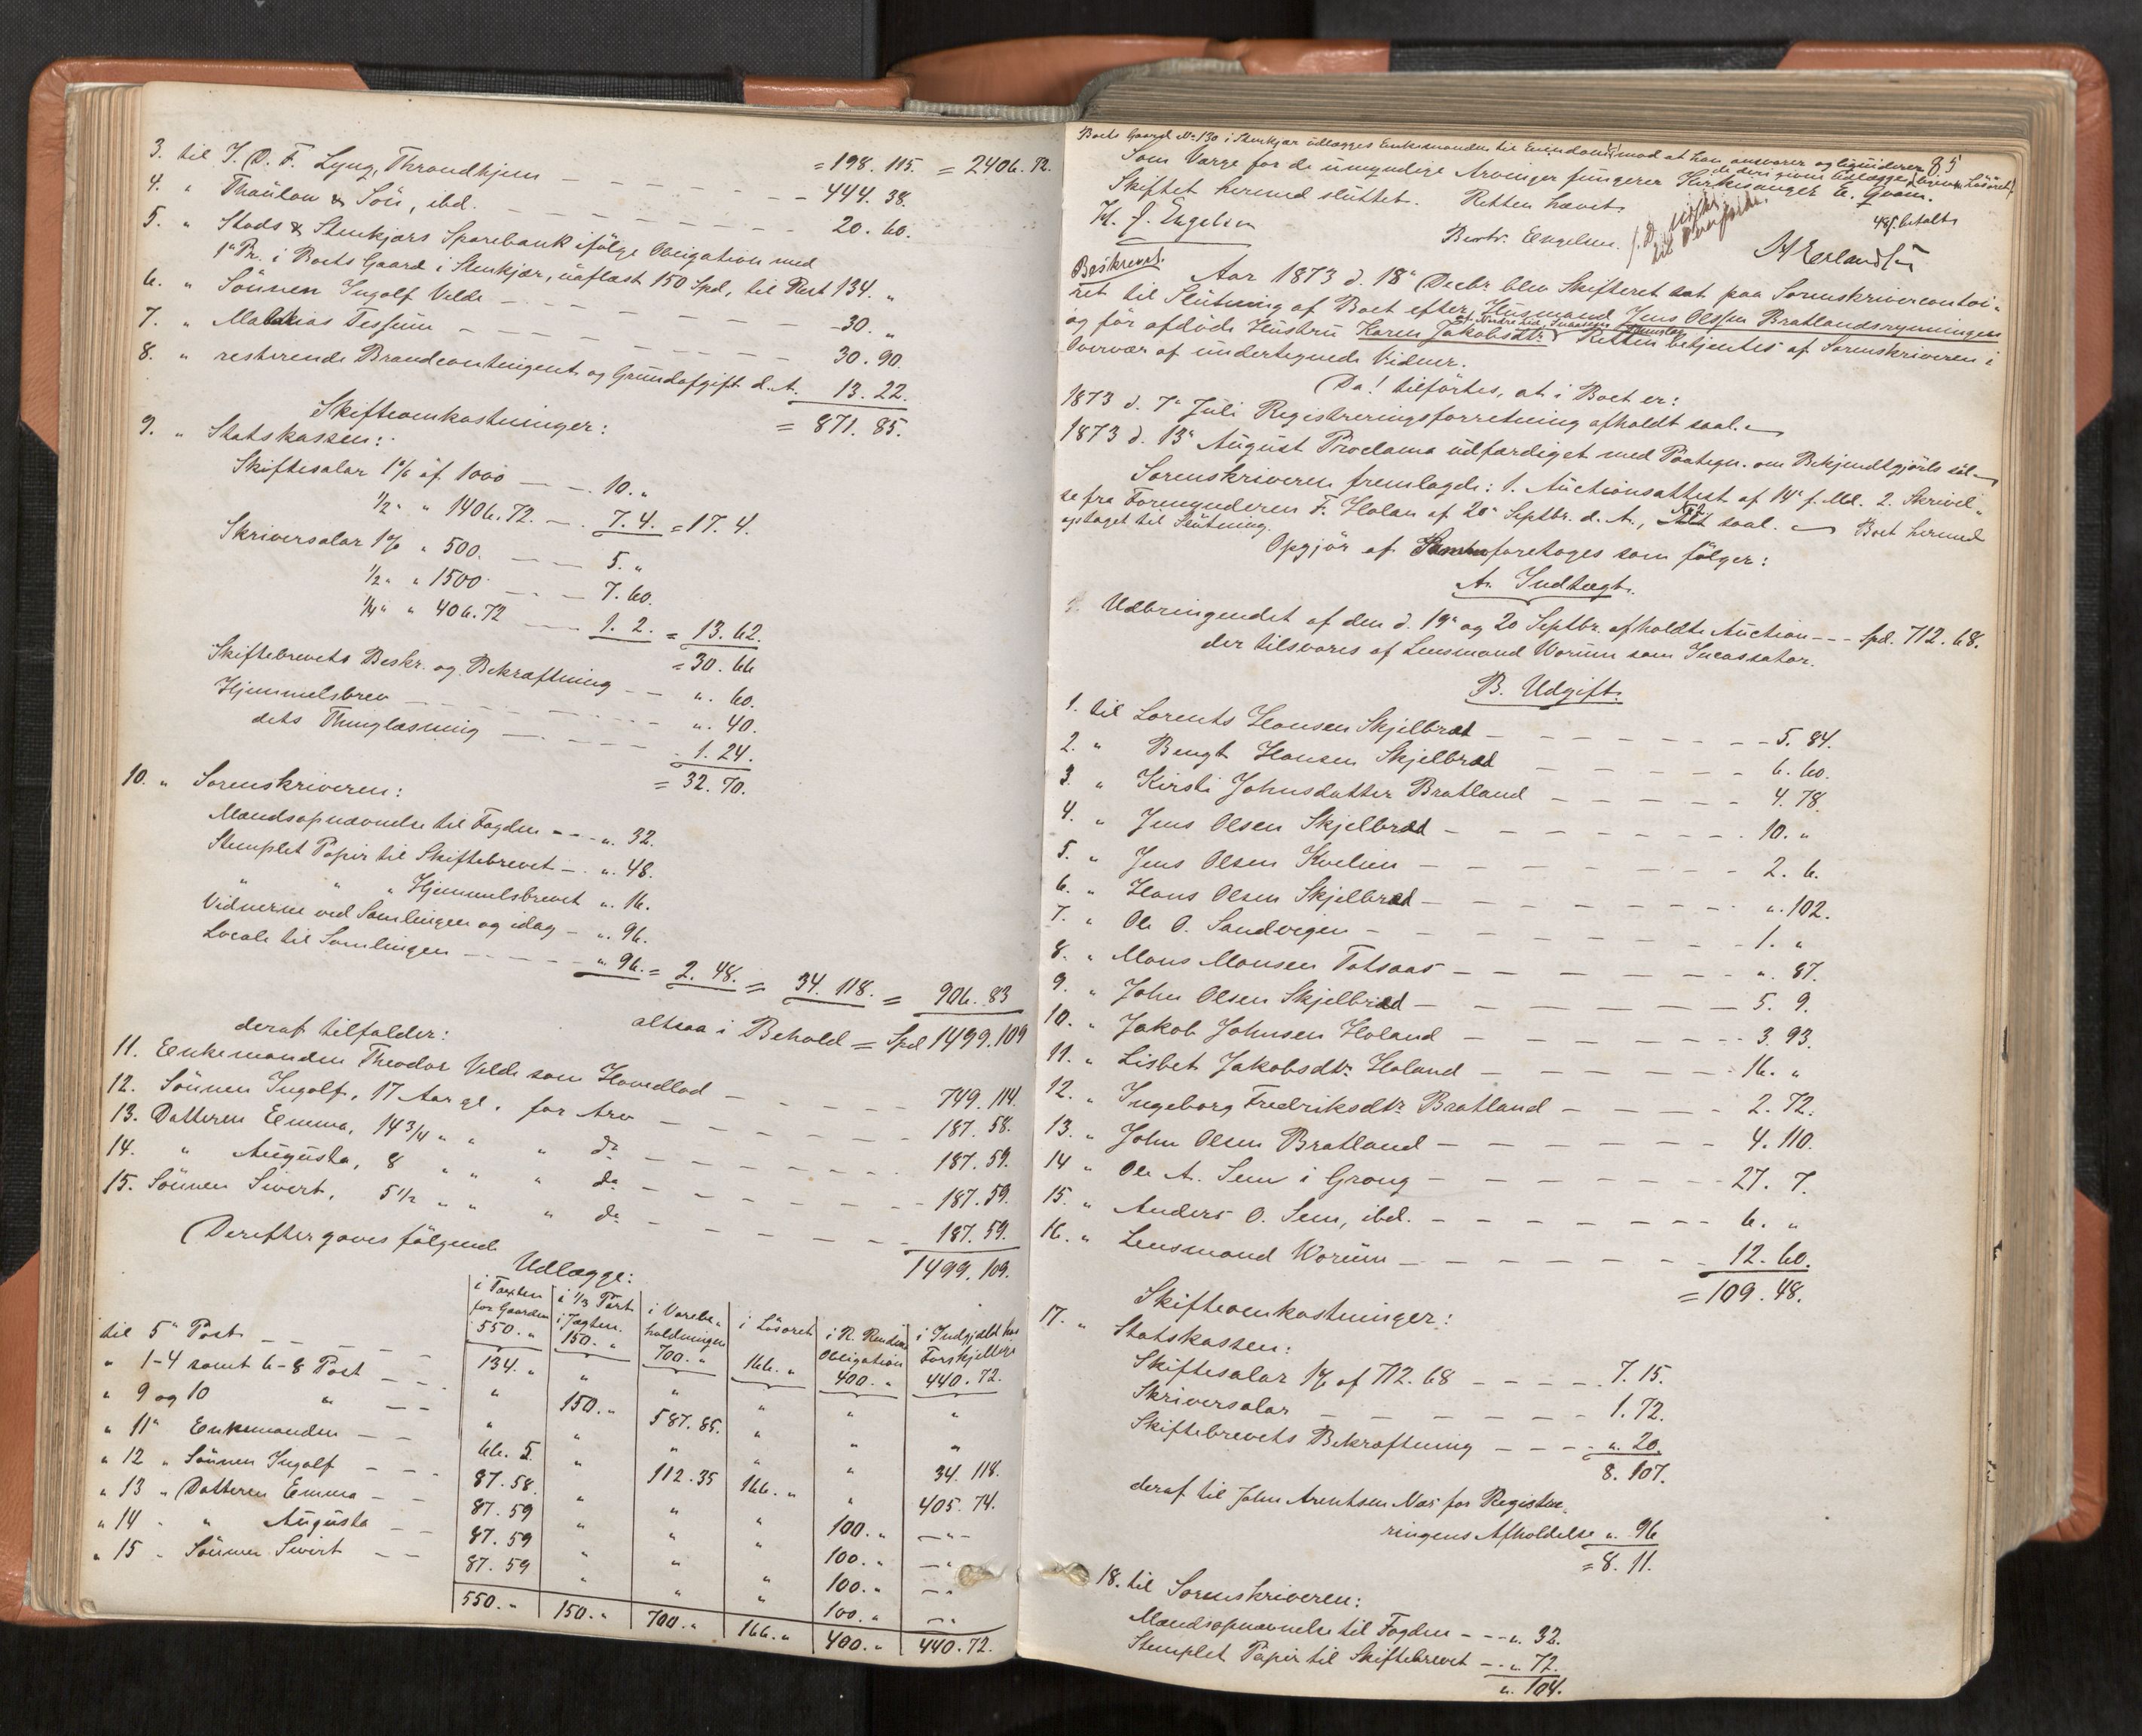 3. til J. D. F. Lyng, Throndhjem — — — = 198. 115. = 2406. 72.
4. " Thaulow & Sön, ibd. — — — 444. 38.
5. " Stods & Stenkjærs Sparebank ifölge Obligation med 20. 60.
1ª Pr. i Boets Gaard i Stenkjær, uaflæst 150 Spd, til Rest 134. "
6. " Sönnen Ingolf Velde — — — 30. "
7. " Mathias Tessum — — — 30. 90.
8. " resterende Brandcontingent og Grundafgift d. A. 13. 22.
= 871. 85.
Skifteomkostninger:
9. " Statskassen:
Skiftesalær 1% af 1000 — — 10. "
½ " " 1406. 72. — . 7. 4. = 17. 4.
Skriversalær 1% " 500. — — 5. "
½ " " 1500 — — 7. 60.
¼ " " 406. 72 — — 1. 2. = 13. 62.
= 30. 66
Skiftebrevets Beskr. og Bekræftning — — ". 60.
Hjemmelsbrev — — — ". 40.
dets Thinglæsning — — — 1. 24.
= 32. 70.
10. " Sorenskriveren:
Mandsopnævnelse til Fogden — — ". 32.
Stemplet Papir til Skiftebrevet — ". 48.
" " " Hjemmelsbrevet ". 16.
Vidnerne ved Samlingen og idag — ". 96.
Locale til Samlingen — — — ". 96. = 2. 48. = 34. 118. = 906. 83
altsaa i Behold = Spd 1499. 109
deraf tilfalder:
11. Enkemanden Theodor Velde som Hovedlod — — — 749. 114.
12. Sönnen Ingolf, 17 Aar gl. for Arv — — — 187. 58.
13. Datteren Emma, 14 3/4 " " " do — — — 187. 59.
14. " Augusta, 8 " " " do — — — 187. 59.
15. Sönnen Sivert, 5 1/2 " " " do — — — 187. 59.
1499. 109.
Derefter gaves fölgende
Udlægge:
i Taxten for Gaarden 550. " | i 1/3 Part i Jægten. 150. " | i Varebeholdningen 700. " | i Lösöret 166. " | i R. Rendems Obligation 400. " | i Indgjæld hos Forskjellige 440. 72.
til 5ª Post — — 134. " " " " " "
" 1-4 samt 6-8 Post — — " 150. " 587. 85. " " "
" 9 og 10 " — — " " " " " 34. 118.
" 11ª Enkemanden — — 66. 5 " 112. 35 166. " " 405. 74.
" 12 " Sönnen Ingolf — — 87. 58. " " " 100. " — "
" 13 " Datteren Emma — — 87. 59 " " " 100. " — "
" 14 " " Augusta — — 87. 59 " " " 100. " — "
" 15 " Sönnen Sivert — — 87. 59 " " " 100. " — "
550. " 150. " 700. " 166. " 400. " 440. 72.
85
Boets Gaard No 130 i Stenkjær udlægges Enkemanden til Eiendom mod at han ansvarer og liqviderer
de deri givne Udlægge, ligesom Lösöret
Som Værge for de umyndige Arvinger fungerer Kirkesanger E. Qvam.
Skiftet hermed sluttet. Retten hævet.
48 s. betalt
J. Engelsen Berntr. Engelsen. M Erlandsen
Beskrevet.
Aar 1873 d. 18ª Decbr. blev Skifteret sat paa Sorenskrivercontoi-
ret til Slutning af Boet efter Husmand Jens Olssen Bratlandsrymningen
og før afdöde Hustru Karen Jakobsdtr. Retten betjentes af Sorenskriveren i
Overvær af undertegnede Vidner.
Da! tilförtes, at i Boet er:
1873 d. 7ª Juli Registreringsforretning afholdt saal.
1873 d. 13ª August Proclama udfærdiget med Paategn. om Bekjendtgjörls saal.
Sorenskriveren fremlagde: 1. Auctionsattest af 14ª f. Md. 2. Skrivel-
se fra Formynderen F. Holan af 20ª Septbr. d. A., saal. Boet hermed
optaget til Slutning.
Opgjör af foretages som fölger:
A. Indtægt.
Udbringendet af den d. 19ª og 20 Septbr. afholdte Auction — — Spd. 712. 68.
der tilsvares af Lensmand Worum som Incassator.
B. Udgift.
1. til Lorents Hansen Skjelbred — — — 5. 84.
2. " Bengt Hansen Skjelbred — — — 6. 60.
3. " Kirsti Johnsdatter Bratland — — — 4. 78.
4. " Jens Olsen Skjelbred — — — 10. "
5. " Jens Olsen Kvelien — — — 2. 6.
6. " Hans Olsen Skjelbred — — — ". 102.
7. " Ole O. Sandvigen — — — 1. "
8. " Mons Monsen Totsaas — — — ". 87.
9. " John Olsen Skjelbred — — — 5. 9.
10. " Jakob Johnsen Holand — — — 3. 93.
11. " Lisbet Jakobsdtr. Holand — — — 16. "
12. " Ingeborg Fredriksdtr. Bratland — — — 2. 72.
13. " John Olsen Bratland — — — 4. 110.
14 " Ole A. Sem i Grong — — — 27. 7.
15. " Anders O. Sem, ibd. — — — 6. "
16. " Lensmand Worum — — — 12. 60.
= 109. 48.
Skifteomkostninger:
17. " Statskassen:
Skiftesalær 1% af 712. 68 — — — 7. 15.
Skriversalær — — — 1. 72.
Skiftebrevets Bekræftning — — — ". 20.
8. 107.
deraf til John Arentsen Næs for Registre-
ringens Afholdelse ". 96
= 8. 11.
18. til Sorenskriveren:
Mandsopnævnelse til Fogden — — ". 32.
Stemplet Papir til Skiftebrevet — ". 72.
". 104.